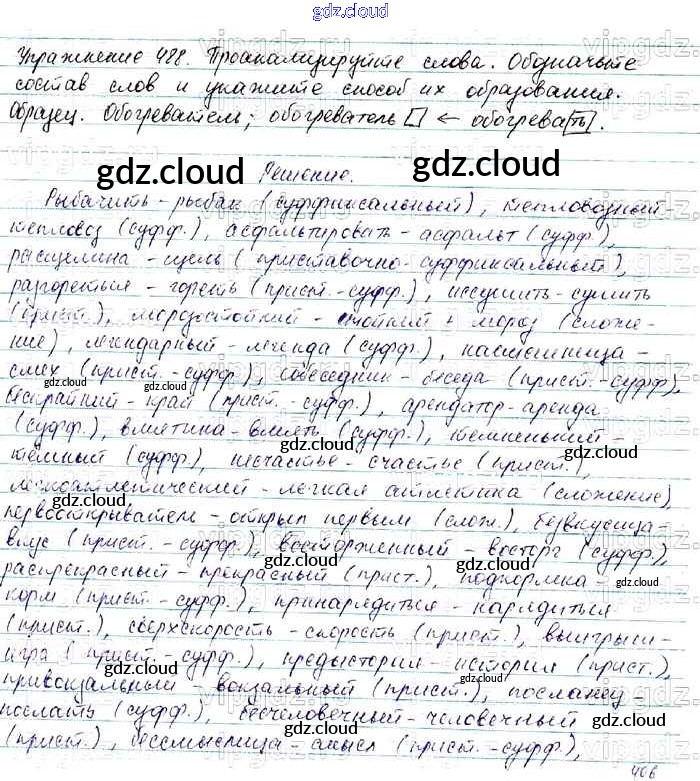 gdz.cloud
Упражнение 488. Проанализируйте слова. Обозначьте
состав слов и укажите способ их образования.
Образец. Обогреватель; обогреватель ← обогрева[ть].
gdz.cloud
gdz.cloud Решение. gdz.cloud
Рыбачить – рыбак (суффиксальный), тепловозный –
тепловоз (суфф.), асфальтировать – асфальт (суфф.),
расщелина – щель (приставочно-суффиксальный),
разгореться – гореть (прист.-суфф.), иссушить – сушить
(прист.), морозостойкий – стойкий + мороз (сложе-
ние), легендарный – легенда (суфф.), насмешница –
смех (прист.-суфф.), собеседник – беседа (прист.-суфф),
бескрайний – край (прист.-суфф.), арендатор – аренда
(суфф.), вмятина – вмять (суфф.), темненький –
тёмный (суфф.), несчастье – счастье (прист.),
легкоатлетический – легкая атлетика (сложение),
первооткрыватель – открыл первым (слож.), безвкусица –
вкус (прист.-суфф.), восторженный – восторг (суфф.),
распрекрасный – прекрасный (прист.), подкормка –
корм (прист.-суфф.), принарядиться – нарядиться
(прист.), сверхскорость – скорость (прист.), выигрыш –
игра (прист.-суфф.), предыстория – история (прист.),
привокзальный – вокзальный (прист.), посланец –
послать (суфф.), бесчеловечный – человечный
(прист.), бессмыслица – смысл (прист.-суфф.),
406